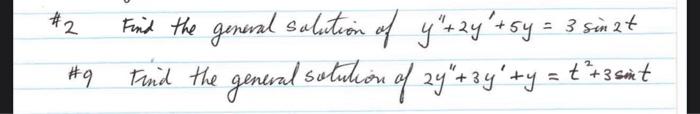 #2 Find the general solution of y"+2y'+5y = 3 sin 2t
#9 Find the general solution of 2y"+3y'+y = t²+3 sin t